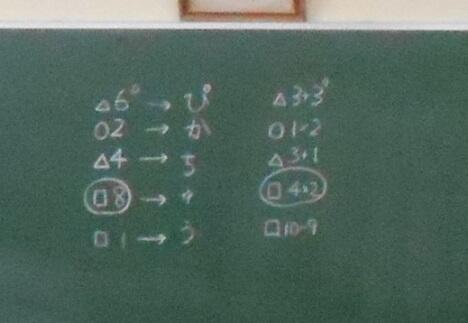 △6° → ぴ
○2 → か
△4 → ち
□8 →
□1 → う
△3+3°
○1×2
△3+1
□4×2
□10-9